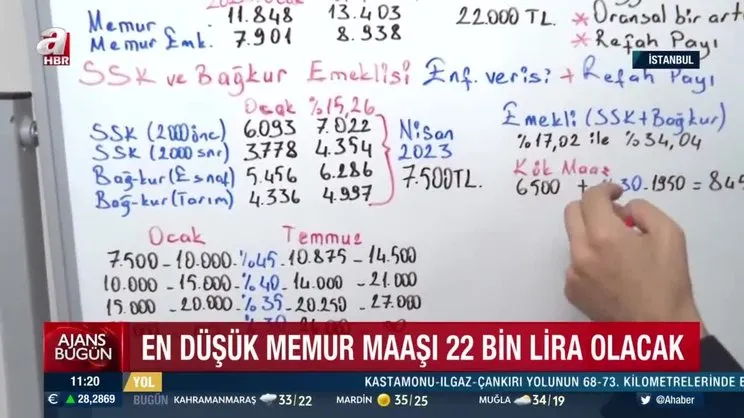 a
HBR
İSTANBUL
11.848 13.403
Memur
Memur Emk. 7.901 8.938
22.000 TL.
* Oransal bir artı
* Refah Payı
SSK ve Bağkur Emeklisi Enf. verisi + Refah Payı
Ocak %15,26
SSK (2000 önc) 6.093 7.022
SSK (2000 snr) 3.778 4.354
Bağ-kur (Esnaf) 5.456 6.286
Bağ-kur (Tarım) 4.336 4.997
Nisan
2023
7.500TL.
Emekli (SSK+Bağkur)
%17,02 ile %34,04
Kök Maaş
6500 + %30-1950 = 845
Ocak Temmuz
7.500 - 10.000 - %45 - 10.875 - 14.500
10.000 - 15.000 - %40 - 14.000 - 21.000
15.000 - 20.000 - %35 - 20.250 - 27.000
AJANS
BUGÜN
EN DÜŞÜK MEMUR MAAŞI 22 BİN LİRA OLACAK
11:20 YOL KASTAMONU-ILGAZ-ÇANKIRI YOLUNUN 68-73. KİLOMETRELERİNDE B
€ 28,2869 BUGÜN KAHRAMANMARAŞ 33/22 MARDİN 35/25 MUĞLA 34/19 @Ahaber